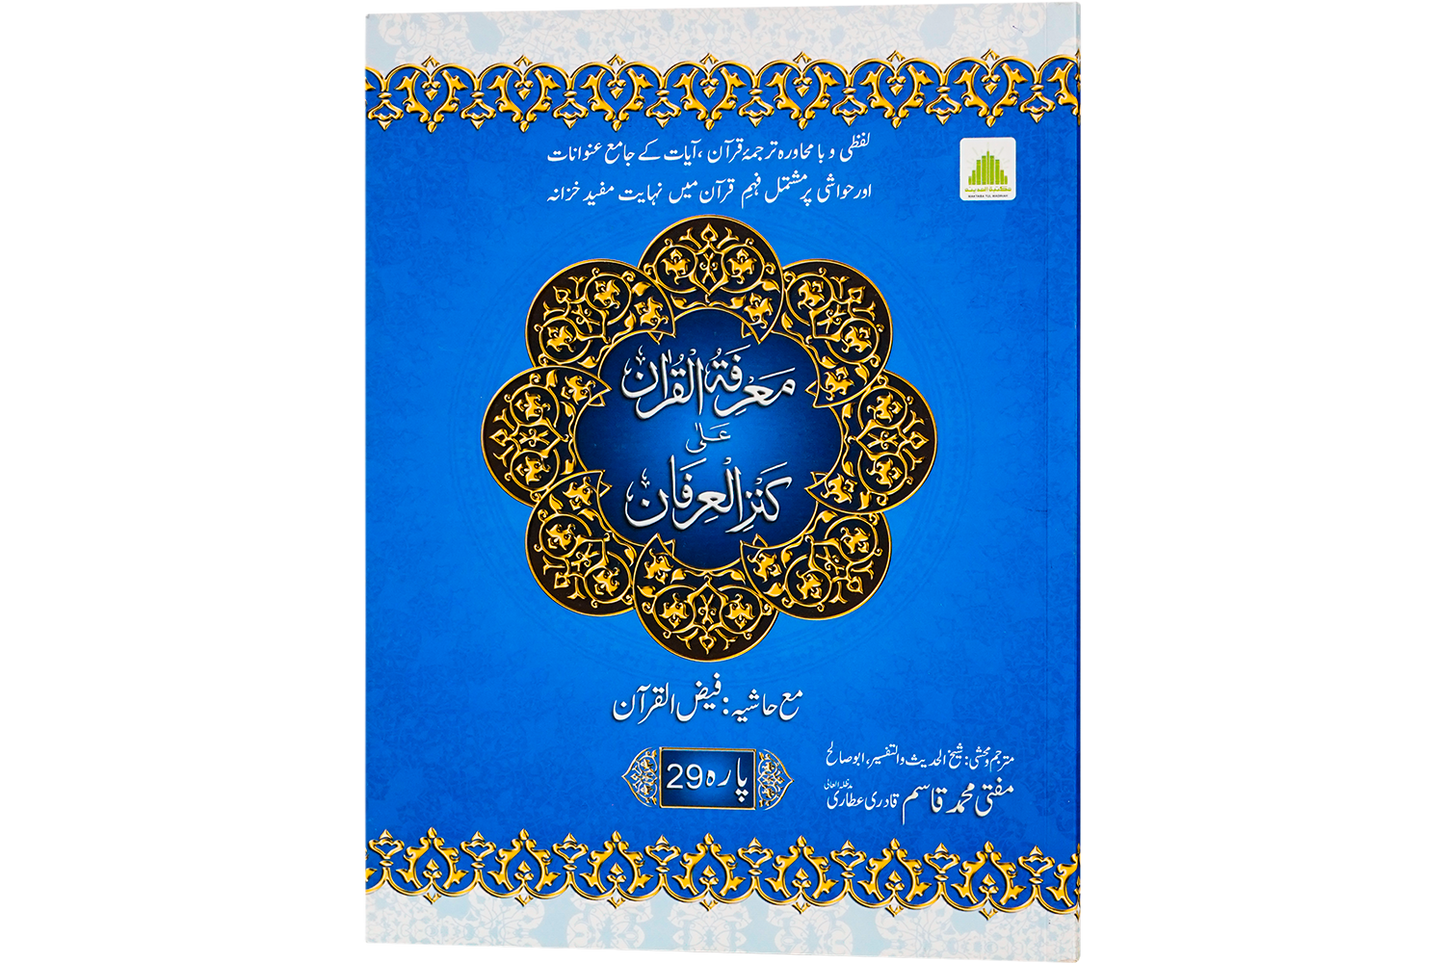 لفظی و با محاورہ ترجمۂ قرآن، آیات کے جامع عنوانات
اور حواشی پر مشتمل فہمِ قرآن میں نہایت مفید خزانہ
مکتبة المدینه
MAKTABA TUL MADINAH
مَعْرِفَةُ الْقُرْاٰن
عَلٰی
کَنْزِالْعِرفَان
مع حاشیہ: فیض القرآن
پارہ 29
مترجم و محشی: شیخ الحدیث والتفسیر، ابو صالح
مفتی محمد قاسم قادری عطاری مدظلہ العالی